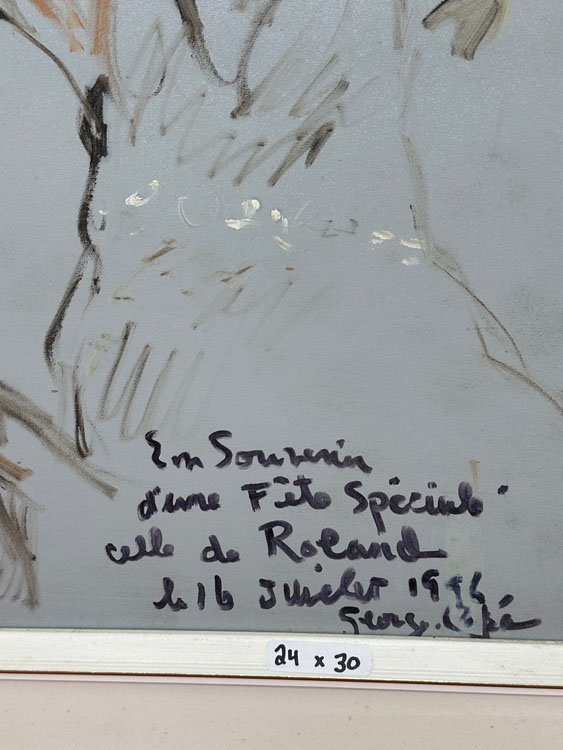 En Souvenir
d'une Fête Spéciale
celle de Roland
le 16 Juillet 19
24 x 30